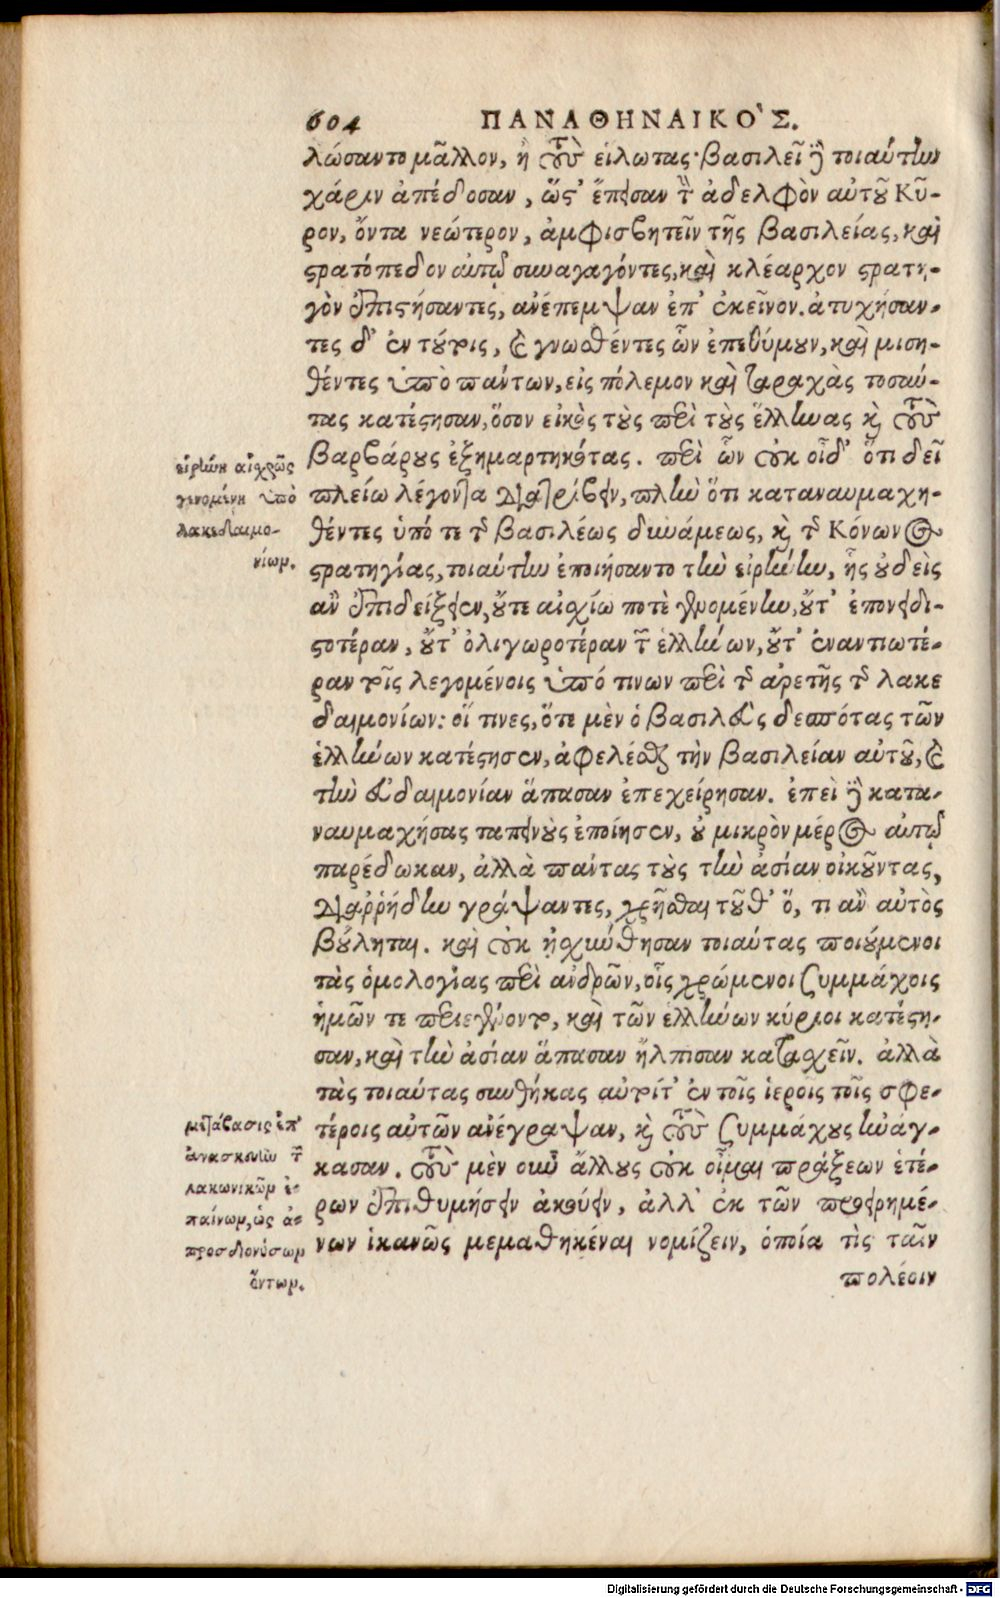 604 ΠΑΝΑΘΗΝΑΙΚΟ῾Σ.
λώσαντο μᾶλλον, ἢ τοὺς εἵλωτας· βασιλεῖ δὲ τοιαύτην
χάριν ἀπέδοσαν, ὥστ' ἔπεισαν τὸν ἀδελφὸν αὐτοῦ Κῦ-
ρον, ὄντα νεώτερον, ἀμφισβητεῖν τῆς βασιλείας, καὶ
στρατόπεδον αὐτῷ συναγαγόντες, καὶ κλέαρχον στρατη-
γὸν ἐπιστήσαντες, ἀνέπεμψαν ἐπ' ἐκεῖνον. ἀτυχήσαν-
τες δ' ἐν τούτοις, καὶ γνωσθέντες ὧν ἐπεθύμουν, καὶ μιση-
θέντες ὑπὸ πάντων, εἰς πόλεμον καὶ ταραχὰς τοσαύ-
τας κατέστησαν, ὅσον εἰκὸς τοὺς περὶ τοὺς ἕλληνας καὶ τοὺς
βαρβάρους ἐξημαρτηκότας. περὶ ὧν οὐκ οἶδ' ὅτι δεῖ
πλείω λέγοντα διατρίβειν, πλὴν ὅτι καταναυμαχη-
θέντες ὑπό τε τῆς βασιλέως δυνάμεως, καὶ τῆς Κόνωνος
στρατηγίας, τοιαύτην ἐποιήσαντο τὴν εἰρήνην, ἧς οὐδεὶς
ἂν ἐπιδείξειεν, οὔτε αἰσχίω ποτὲ γενομένην, οὔτ' ἐπονειδι-
στοτέραν, οὔτ' ὀλιγωροτέραν τῶν ἑλλήνων, οὔτ' ἐναντιωτέ-
ραν τοῖς λεγομένοις ὑπό τινων περὶ τῆς ἀρετῆς τῆς λακε
δαιμονίων: οἵ τινες, ὅτε μὲν ὁ βασιλεὺς δεσπότας τῶν
ἑλλήνων κατέστησεν, ἀφελέσθαι τὴν βασιλείαν αὐτοῦ, καὶ
τὴν εὐδαιμονίαν ἅπασαν ἐπεχείρησαν. ἐπεὶ δὲ κατα-
ναυμαχήσας ταπεινοὺς ἐποίησεν, οὐ μικρὸν μέρος αὐτῷ
παρέδωκαν, ἀλλὰ πάντας τοὺς τὴν ἀσίαν οἰκοῦντας,
διαῤῥήδην γράψαντες, χρῆσθαι τοῦθ' ὅ, τι ἂν αὐτὸς
βούληται. καὶ οὐκ ᾐσχύνθησαν τοιαύτας ποιούμενοι
τὰς ὁμολογίας περὶ ἀνδρῶν, οἷς χρώμενοι ξυμμάχοις
ἡμῶν τε περιεγένοντο, καὶ τῶν ἑλλήνων κύριοι κατέστη-
σαν, καὶ τὴν ἀσίαν ἅπασαν ἤλπισαν κατασχεῖν. ἀλλὰ
τὰς τοιαύτας συνθήκας αὐτοί τ' ἐν τοῖς ἱεροῖς τοῖς σφε-
τέροις αὐτῶν ἀνέγραψαν, καὶ τοὺς ξυμμάχους ἠνάγ-
κασαν. τοὺς μὲν οὖν ἄλλους οὐκ οἶμαι πράξεων ἑτέ-
ρων ἐπιθυμήσειν ἀκούειν, ἀλλ' ἐκ τῶν προειρημέ-
νων ἱκανῶς μεμαθηκέναι νομίζειν, ὁποία τὶς ταῖν
πολέοιν
εἰρήνη αἰχρῶς
γινομένη ὑπὸ
λακεδαιμο-
νίων.
μετάβασις ἐπ'
ἀνασκευὴν τῶν
λακωνικῶν ἐ-
παίνων, ὡς ἀ-
προσδιονύσων
ὄντων.
Digitalisierung gefördert durch die Deutsche Forschungsgemeinschaft - DFG